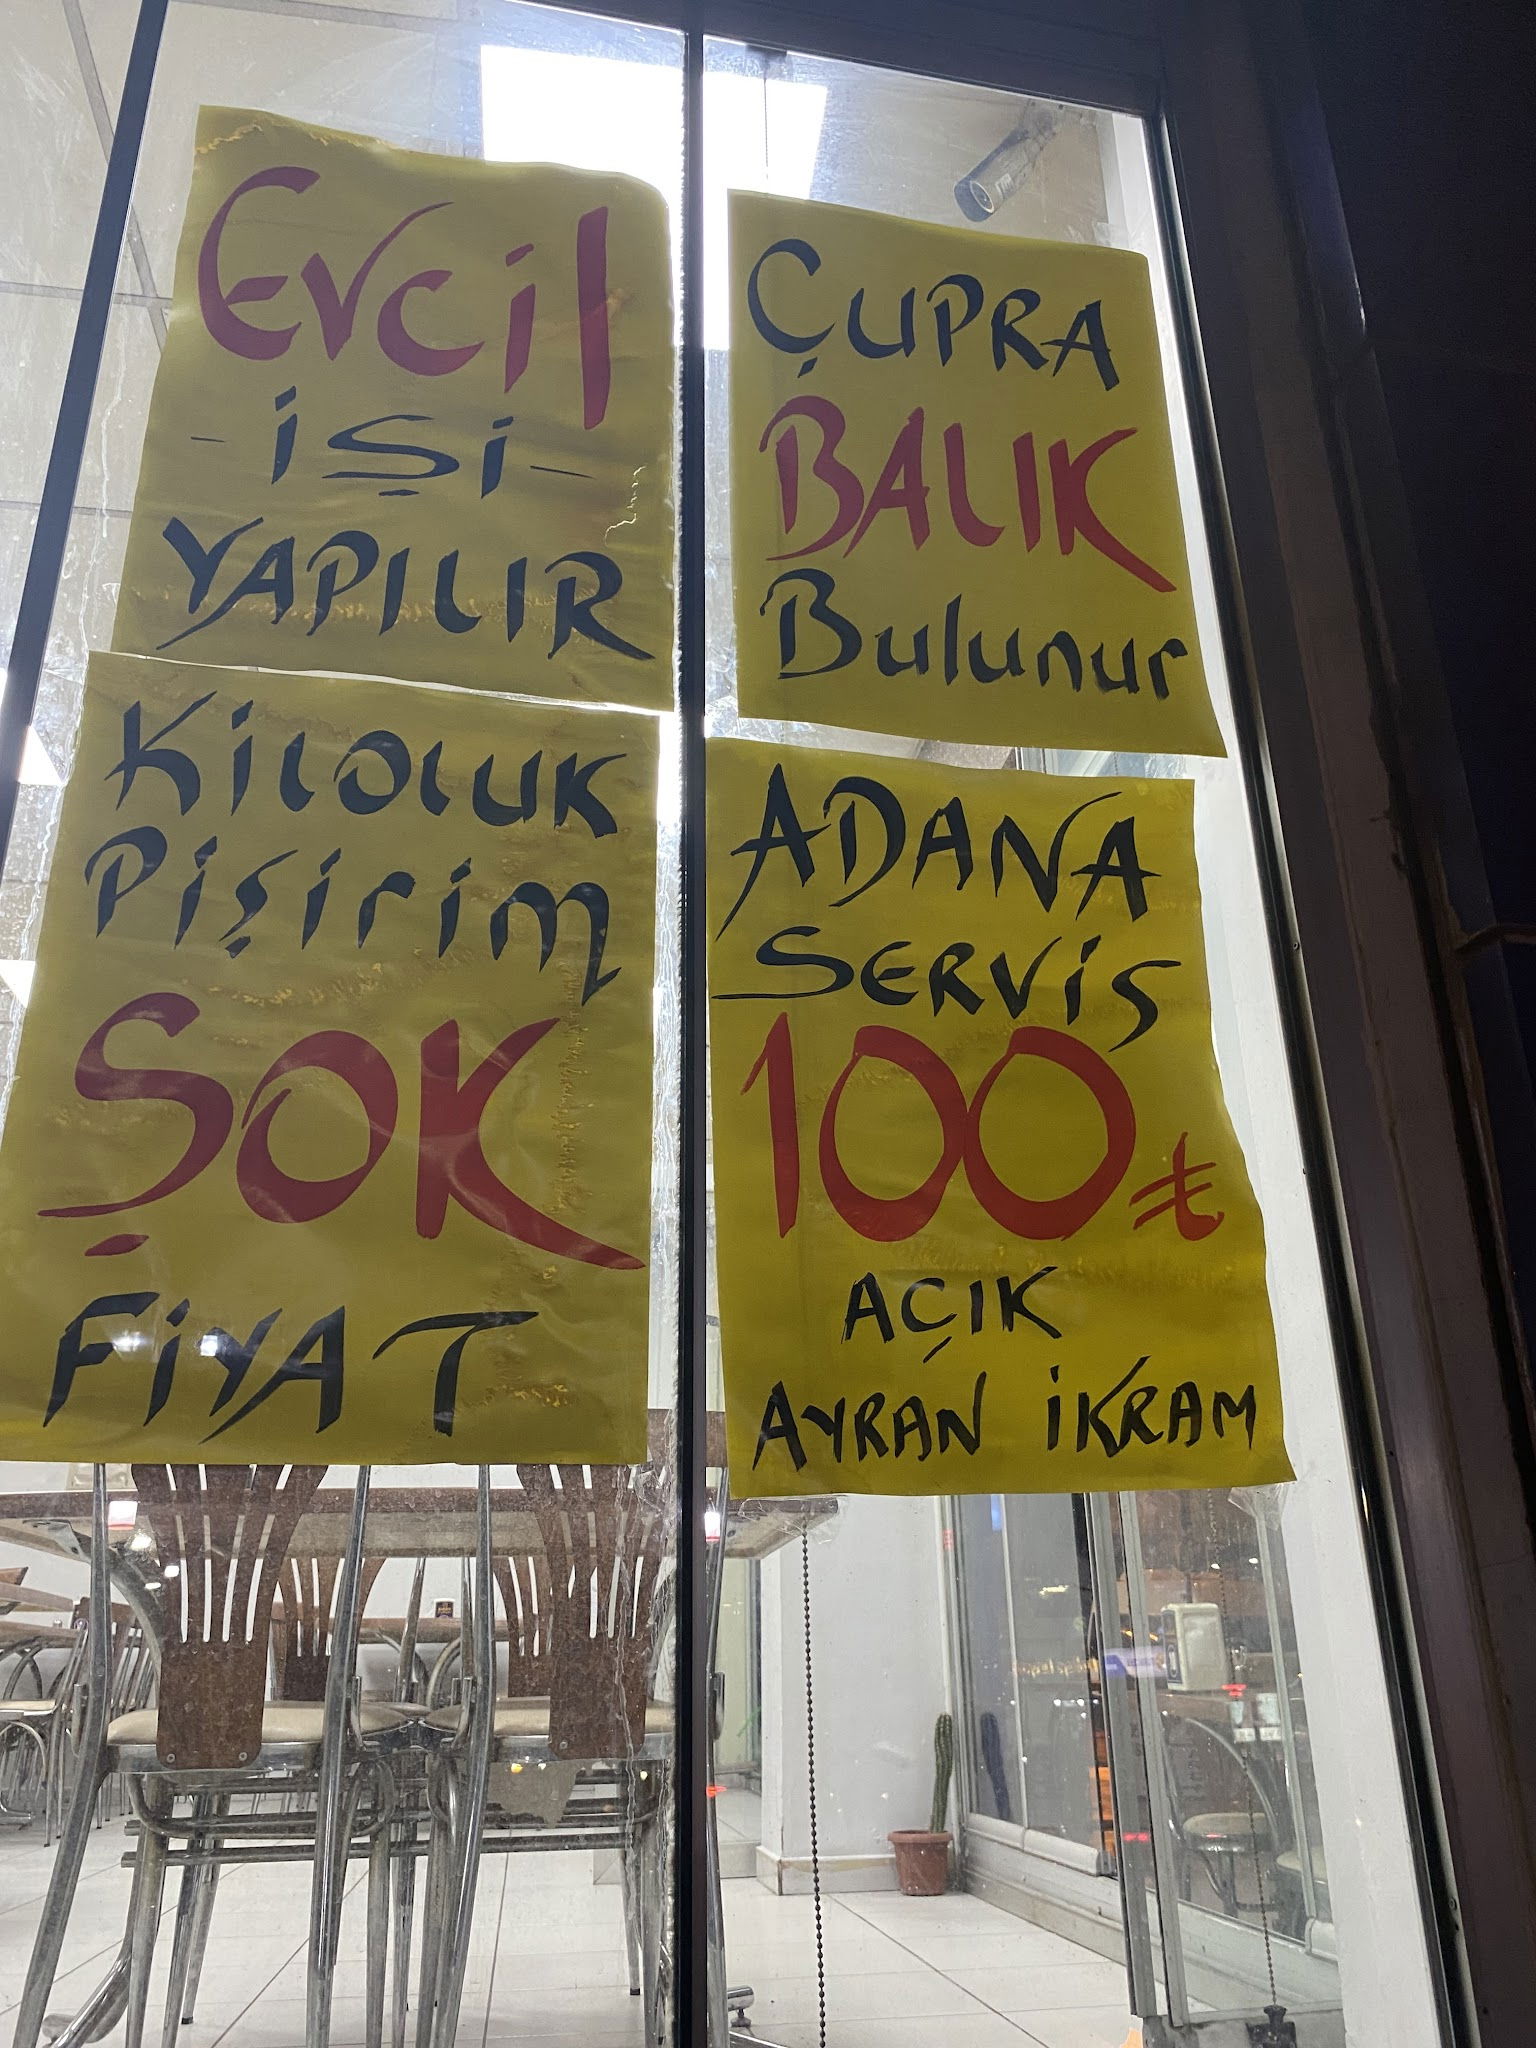 Evcil
-İŞİ-
YAPILIR
ÇUPRA
BALIK
Bulunur
Kiloluk
Pişirim
ŞOK
FİYAT
ADANA
SERVİS
100₺
AÇIK
AYRAN İKRAM